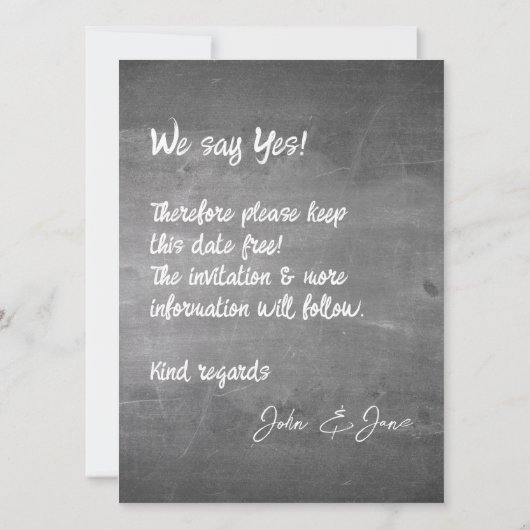 We say Yes!
Therefore please keep
this date free!
The invitation & more
information will follow.
Kind regards
John & Jane